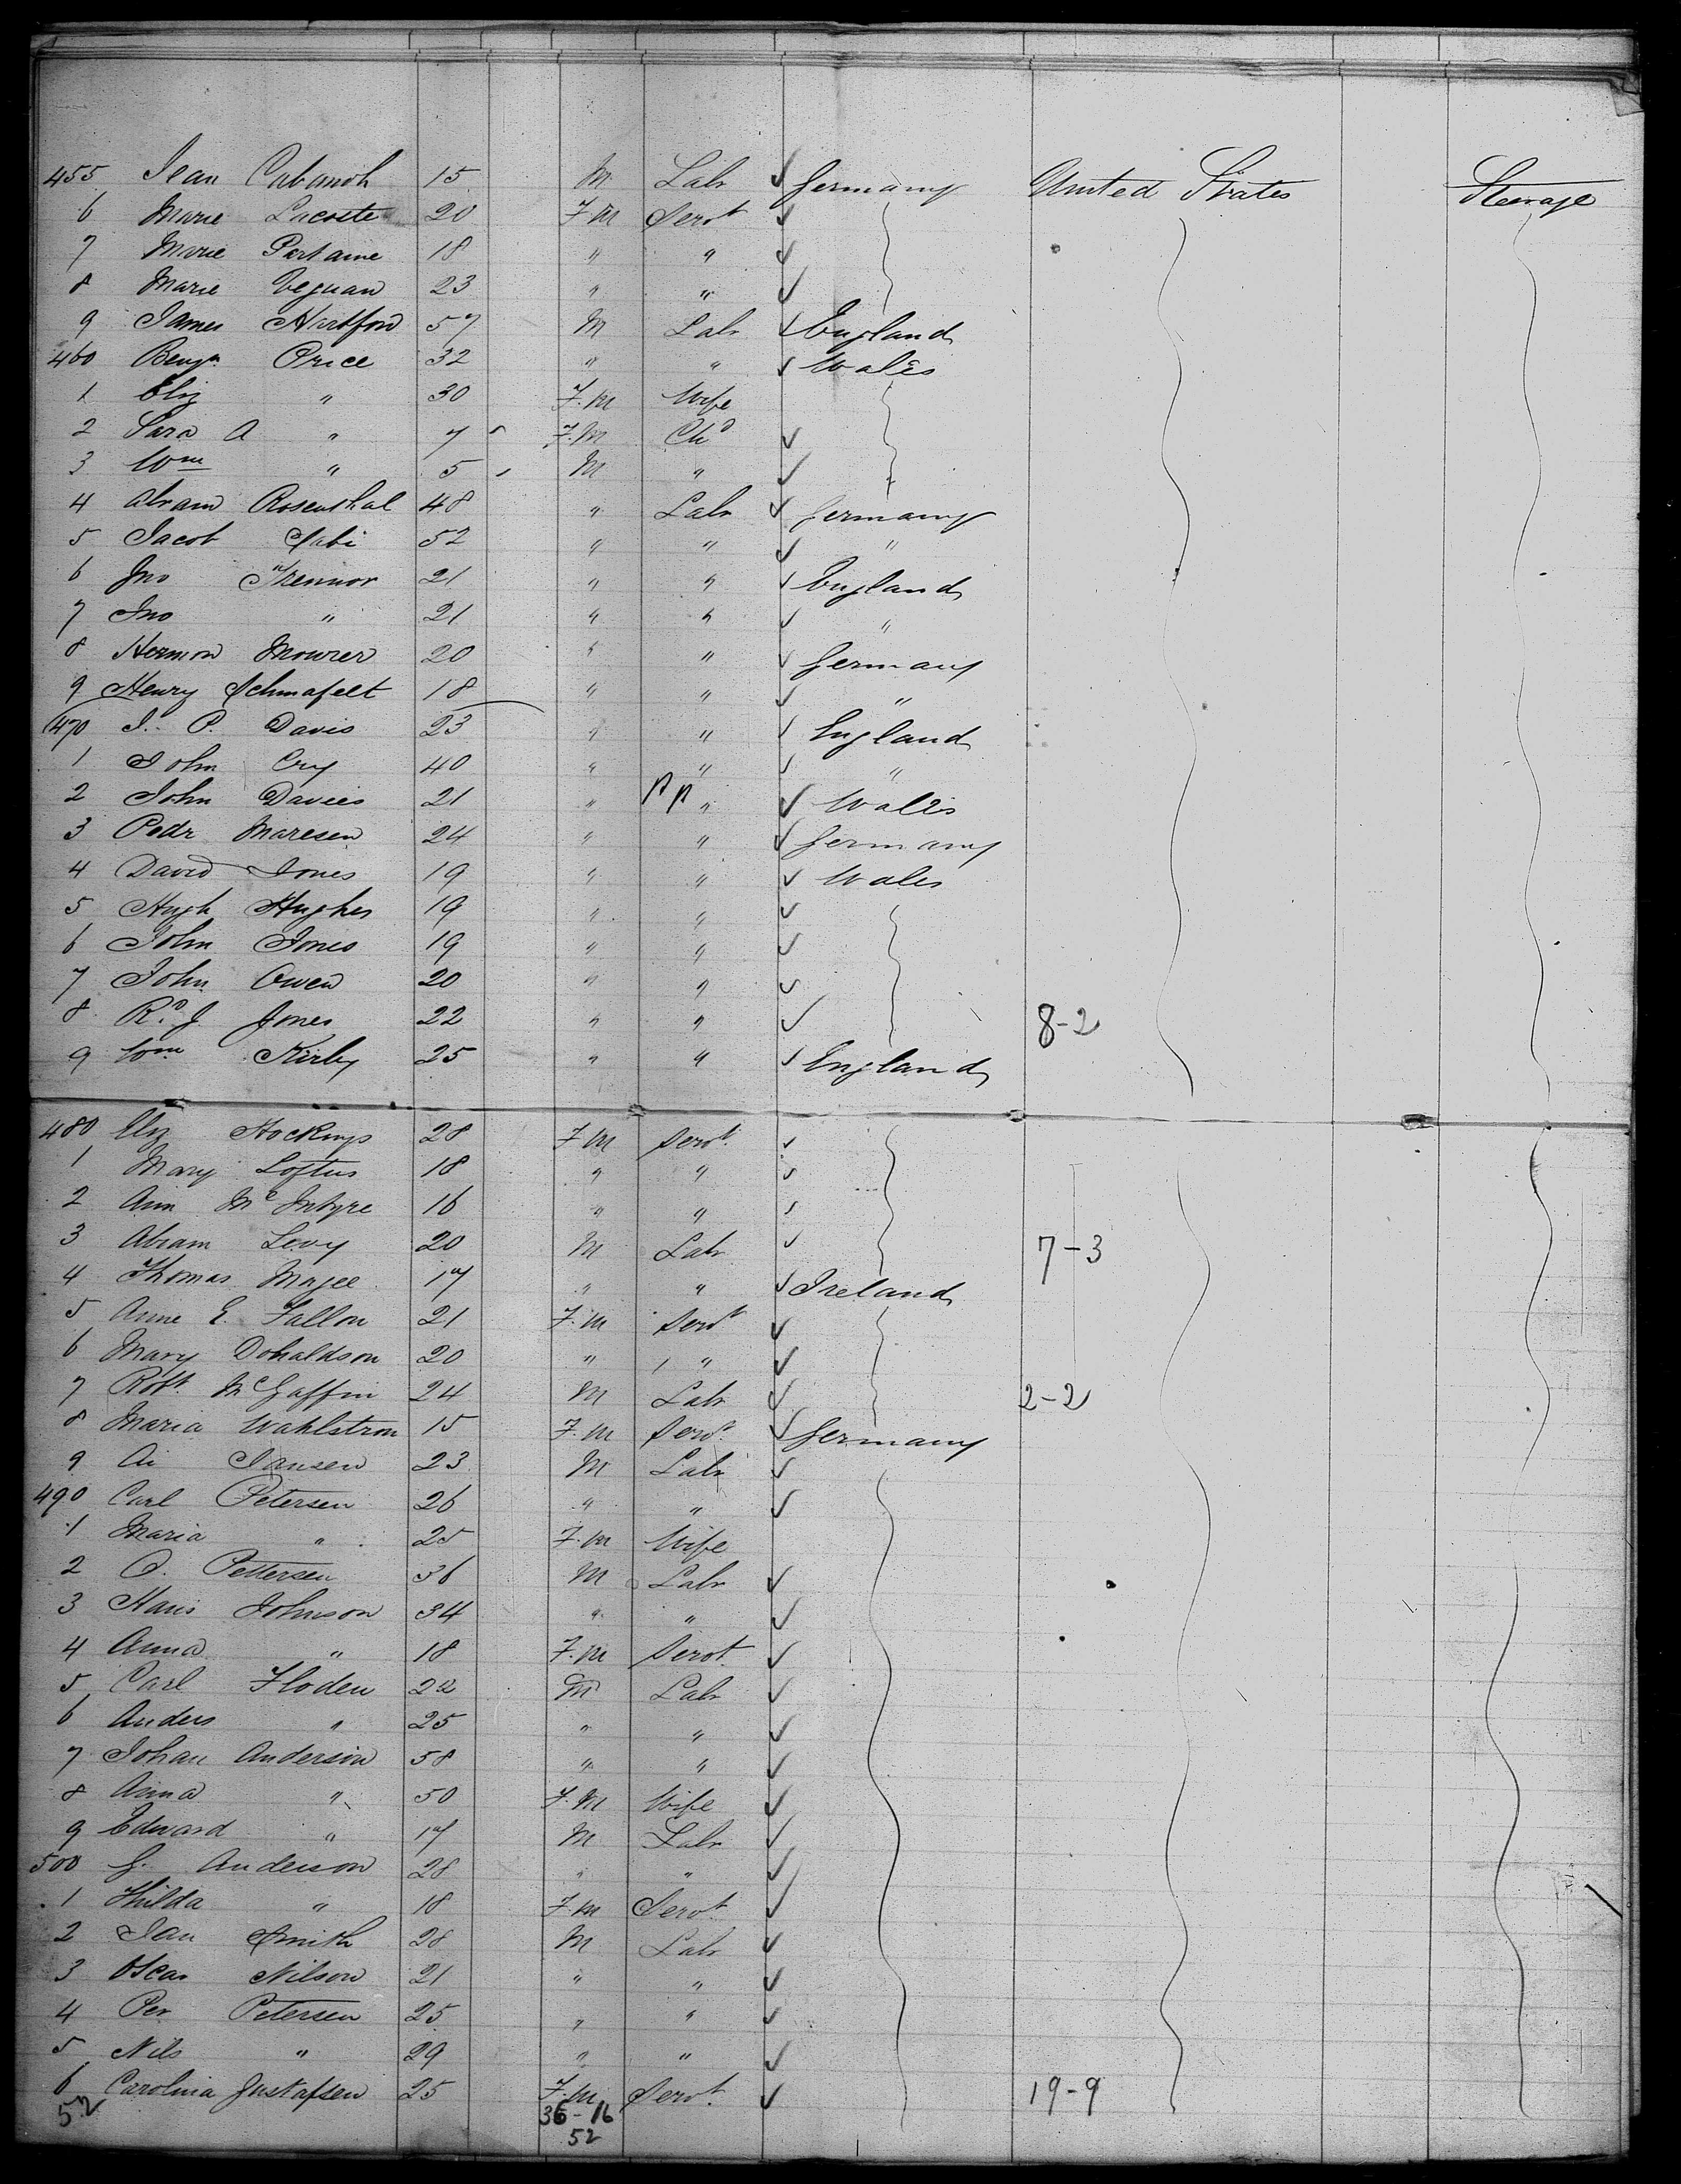 455 Jean Cabanoh 15 M Labr Germany United States Steerage
6 Marie Lacoste 20 F.M Servt
7 Marie Partaine 18 " "
8 Marie Veguan 23 " "
9 James Hartford 57 M Labr England
460 Benjn Price 32 " " Wales
1 Eliz " 30 F.M Wife
2 Sara A " 7 F.M Chd
3 Wm " 5 M "
4 Abram Rosenthal 48 " Labr Germany
5 Jacob Sabi 52 " " "
6 Jno Trennor 21 " " England
7 Jno " 21 " " "
8 Hermon Mourer 20 " " Germany
9 Henry Schmafelt 18 " " "
470 J. P. Davis 23 " " England
1 John Cry 40 " " "
2 John Davies 21 " " Wales
3 Pedr Maresen 24 " " Germany
4 David Jones 19 " " Wales
5 Hugh Hughes 19 " "
6 John Jones 19 " "
7 John Owen 20 " "
8 Rd. J. Jones 22 " " 8-2
9 Wm Kirby 25 " " England
480 Eliz Hockings 28 F.M Servt.
1 Mary Loftus 18 " "
2 Ann McIntyre 16 " "
3 Abram Levy 20 M Labr 7-3
4 Thomas Magee 17 " " Ireland
5 Anne E. Fallon 21 F.M Servt
6 Mary Donaldson 20 " "
7 Robt. McGaffin 24 M Labr 2-2
8 Maria Wahlstrom 15 F.M Servt. Germany
9 Jansen 23 M Labr
490 Carl Petersen 26 " "
1 Maria " 25 F.M Wife
2 O. Pettersen 36 M Labr
3 Hans Johnson 34 " "
4 Anna " 18 F.M Servt.
5 Carl Floden 22 M Labr
6 Anders " 25 " "
7 Johan Anderson 58 " "
8 Anna " 50 F.M Wife
9 Edward " 17 M Labr
500 G. Anderson 28 " "
1 Hilda " 18 F.M Servt.
2 Jan Smith 28 M Labr
3 Oscar Nilson 21 " "
4 Per Petersen 25 " "
5 Nils " 29 " "
6 Carolina Gustafsen 25 F.M Servt. 19-9
52 36-16
52